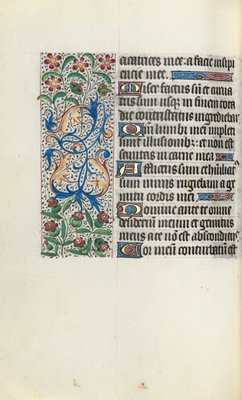 catrices mee: a facie insipi
encie mee.
Miser factus sū et curua
tus sum usq; in finem tota
die contristatus ingrediebar.
Qm̄ lumbi mei impleti
sunt illusionib; et non est
sanitas in carne mea
Afflictus sum et humilia
tus sum nimis rugiebam a ge
mitu cordis mei
Domine ante te omne
desiderium meum et gemitus
meus a te nō est absconditꝰ
Cor meū conturbatū est